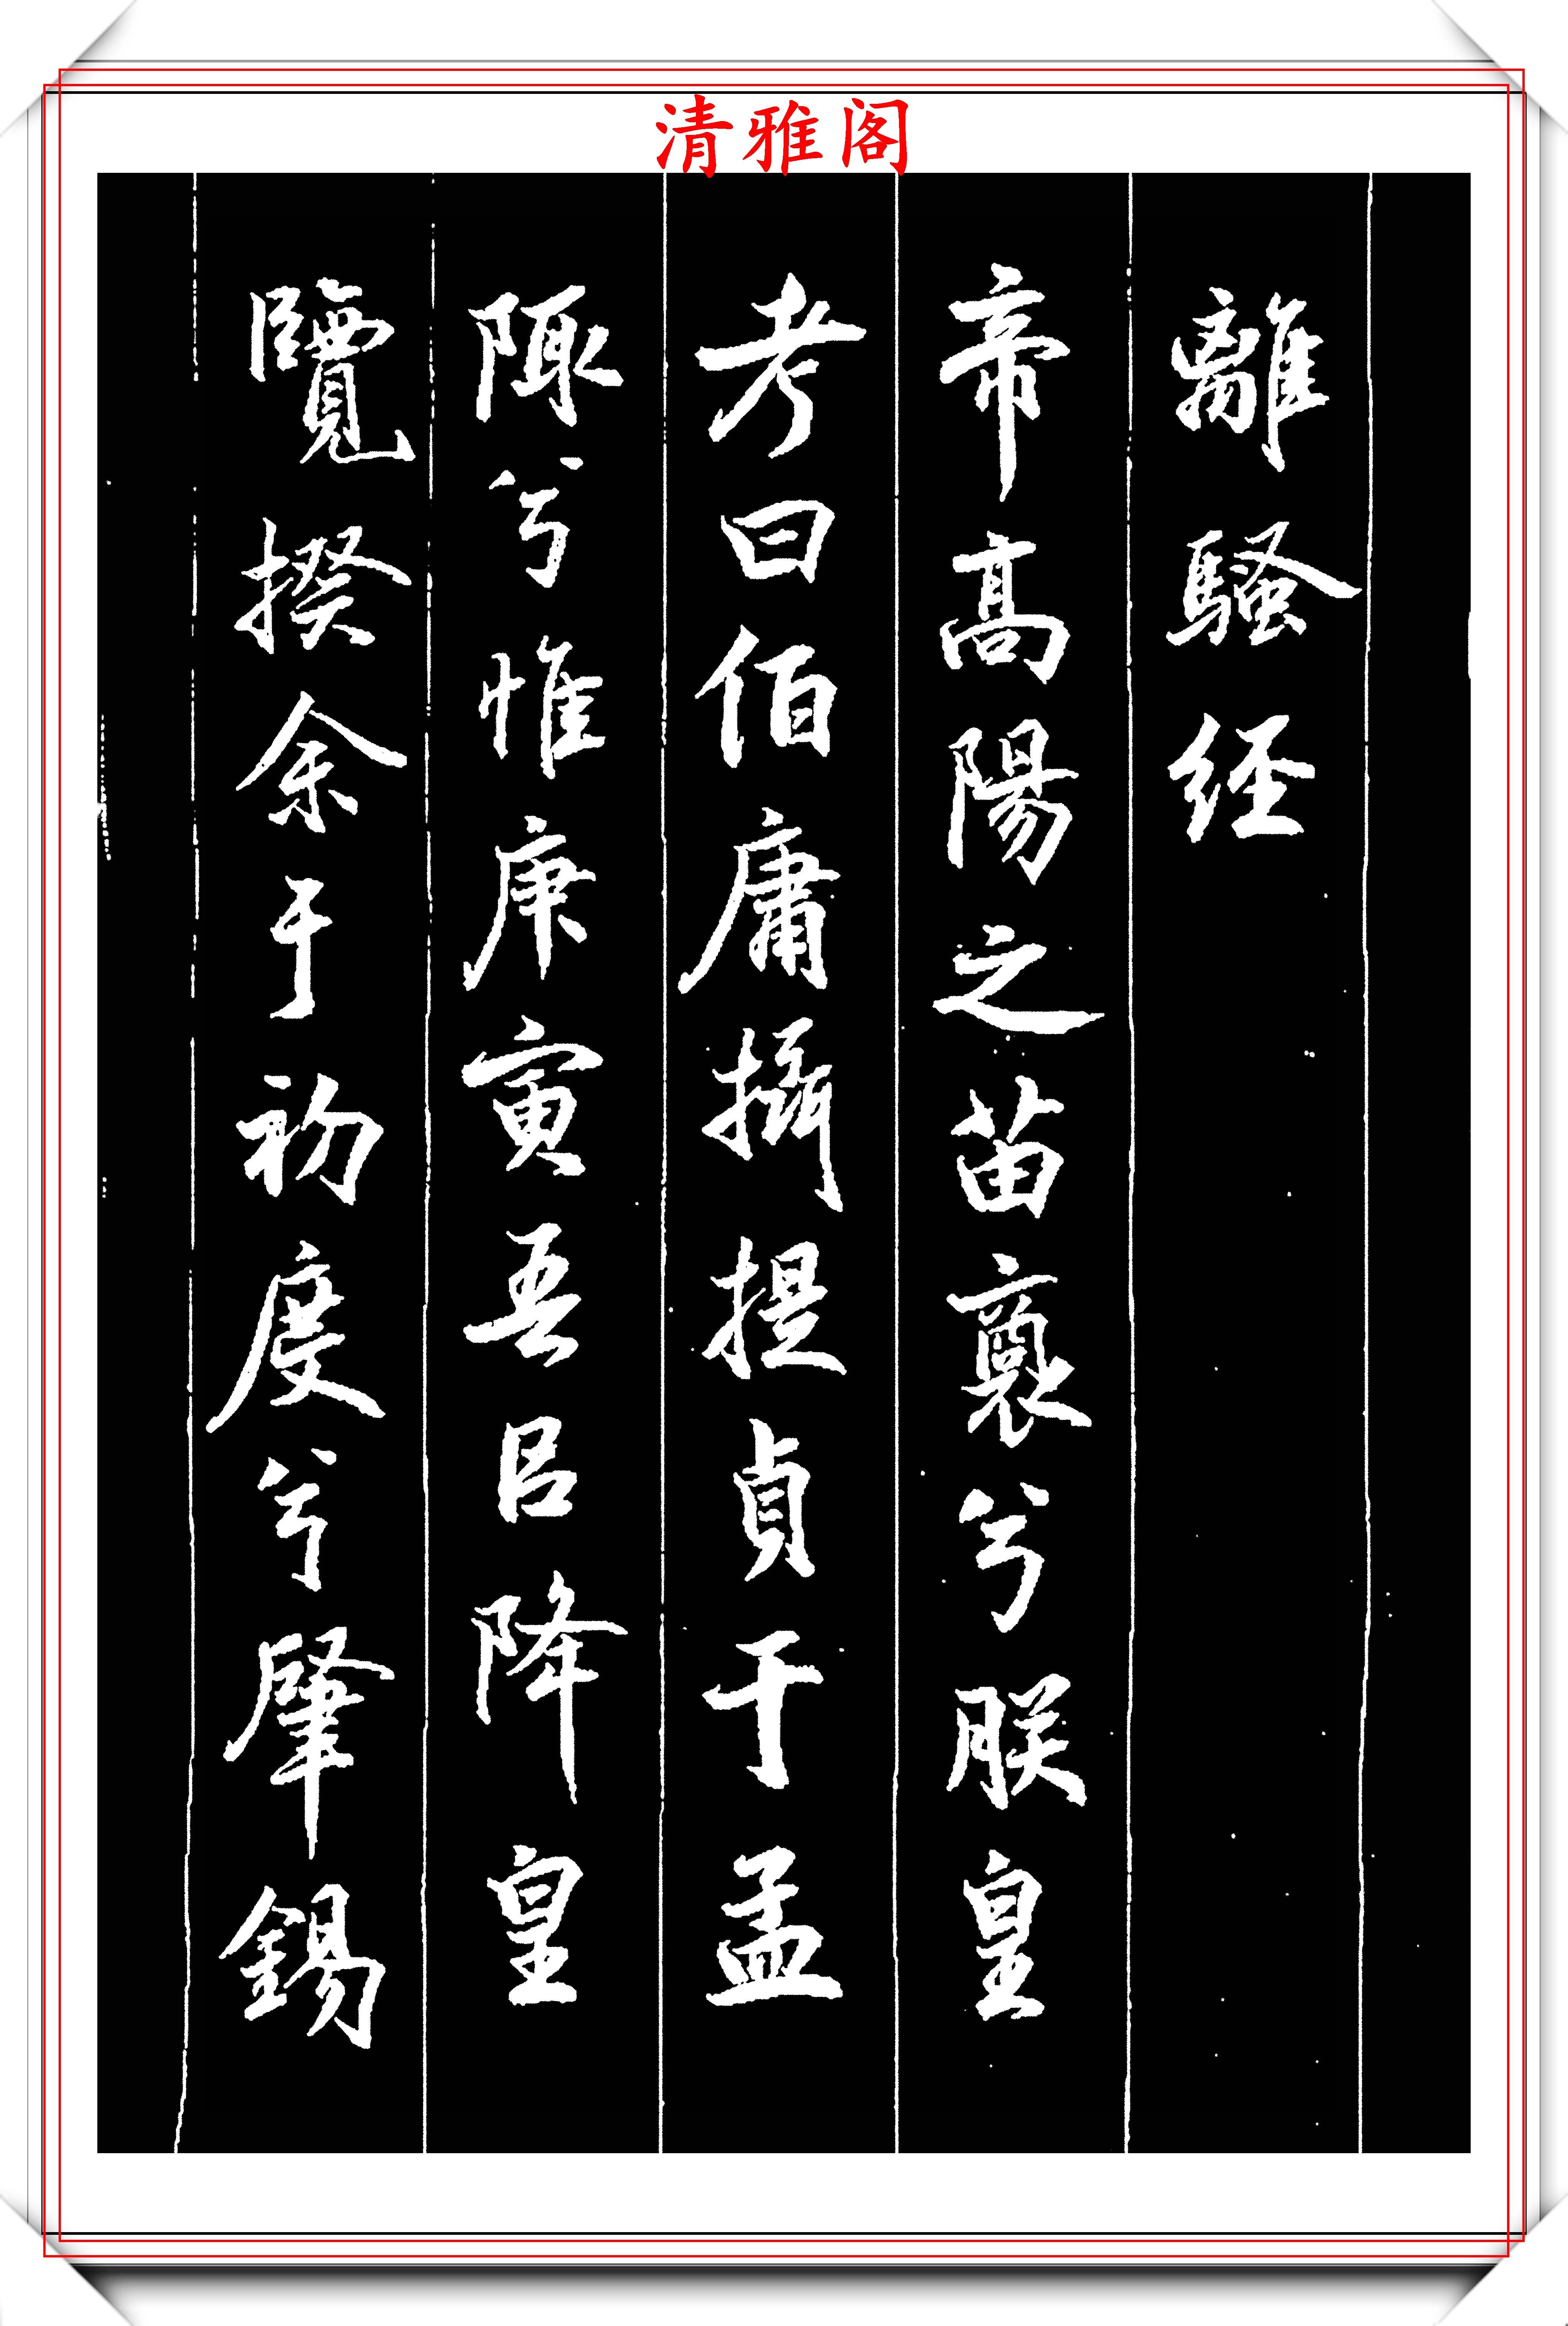 清雅阁
離騷经
帝高陽之苗裔兮朕皇
考曰伯庸攝提貞于孟
陬兮惟庚寅吾吕降皇
覽揆余于初度兮肇錫